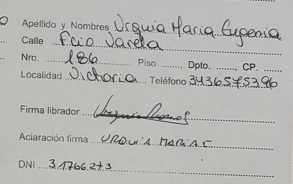 Apellido y Nombres Urquia Maria Eugenia
Calle Fcio Varela
Nro. 186 Piso ...... Dpto. ...... CP. ......
Localidad Victoria Teléfono 3436575396
Firma librador
Aciaración firma URQUIA MARIA E
DNI 31766273